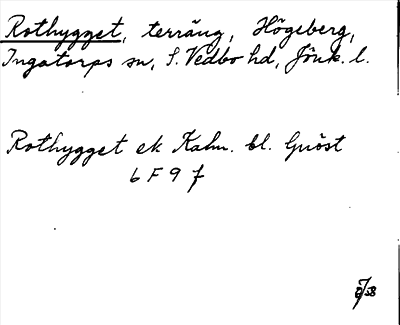 Rothygget, terräng, Högeberg,
Ingatorps sn, S. Vedbo hd, Jönk. l.
Rothygget ek Kalm. bl. Gnöst
6 F 9 f